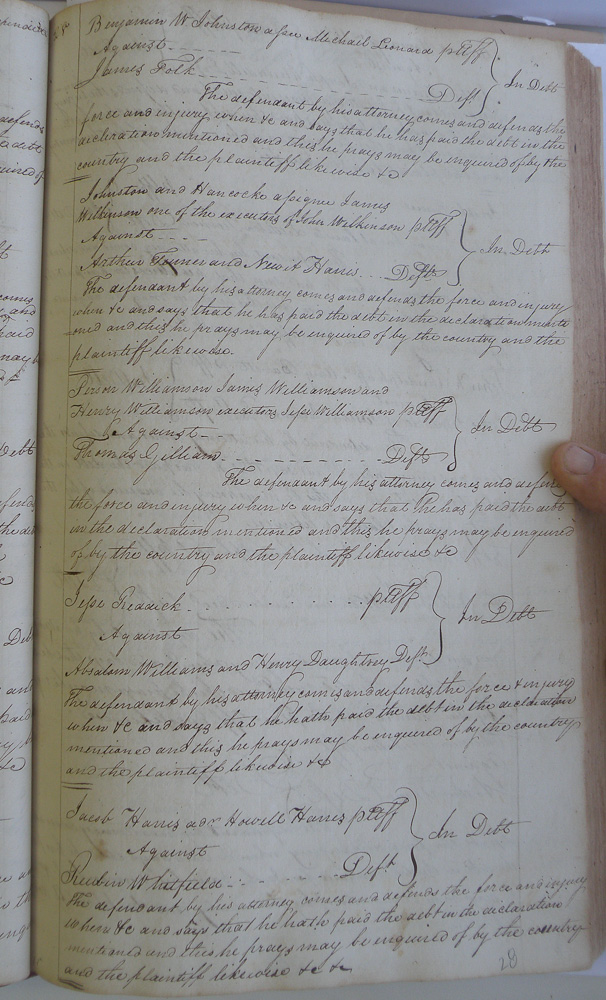 Benjamin W Johnston assee Michail Leonard pltff
Against
James Folk Deft. In Debt
The defendant by his attorney comes and defends the
force and injury when &c and says that he has paid the debt in the
declaration mentioned and this he prays may be enquired of by the
country and the plaintiff likewise &c
Johnston and Hancocke assignee James
Wilkinson one of the executors of John Wilkinson pltff
Against In Debt
Arthur Turner and Newit Harris Defts
The defendant by his attorney comes and defends the force and injury
when &c and says that he has paid the debt in the declaration menti
oned and this he prays may be enquired of by the country and the
plaintiff likewise.
Person Williamson James Williamson and
Henry Williamson executors Jesse Williamson pltff
Against In Debt
Thomas Gilliam Deft
The defendant by his attorney comes and defens
the force and injury when &c and says that he has paid the debt
in the declaration mentioned and this he prays may be enquired
of by the country and the plaintiff likewise &c
Jesse Reddick pltff
Against In Debt
Absalom Williams and Henry Daughtrey Deft.
The defendant by his attorney comes and defends the force & injury
when &c and says that he hath paid the debt in the declaration
mentioned and this he prays may be enquired of by the country
and the plaintiff likewise &c
Jacob Harris adr Howell Harris pltff
Against In Debt
Reubin Whitfield Deft
The defendant by his attorney comes and defends the force and injury
when &c and says that he hath paid the debt in the declaration
mentioned and this he prays may be enquired of by the country
and the plaintiff likewise &c &c
28